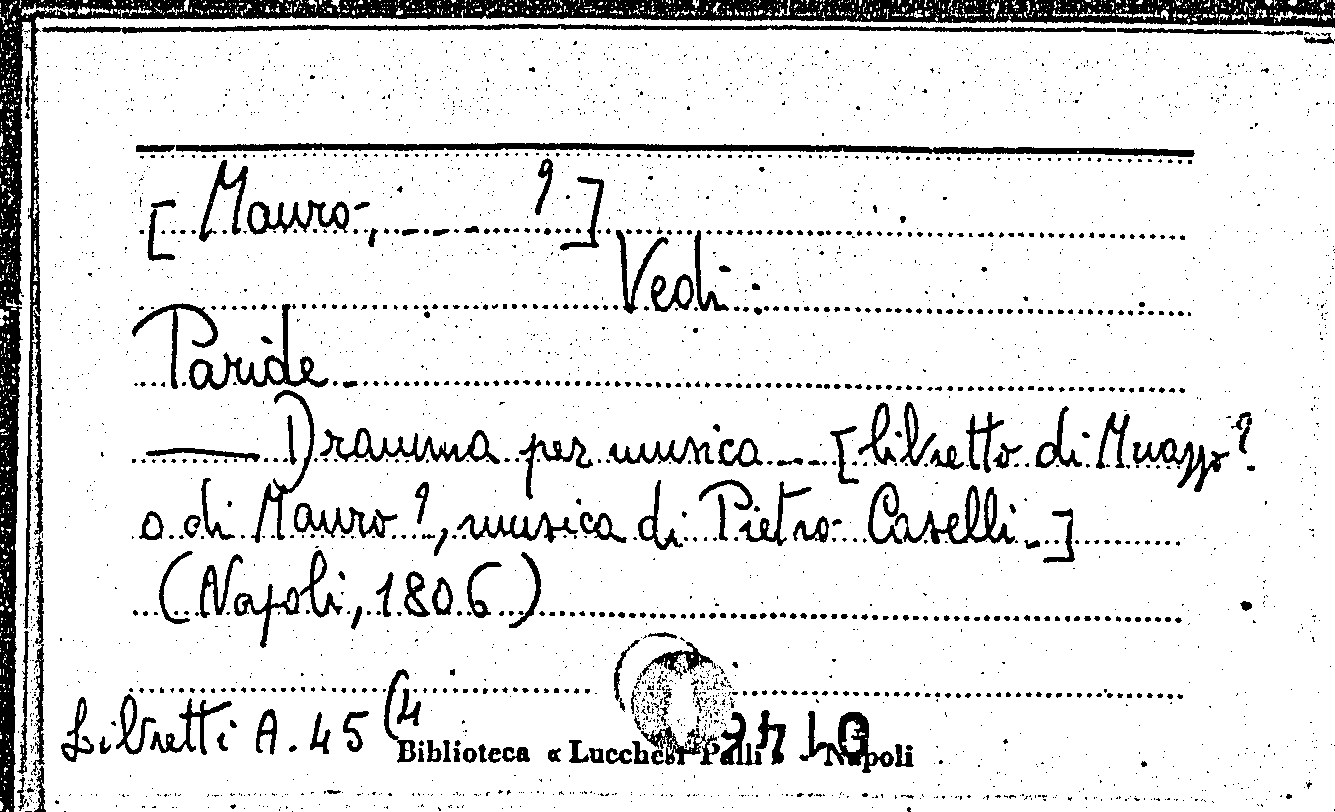 [Mauro, _ _ _ ?]
Vedi:
Paride _
— Dramma per musica _ _ [libretto di Muazzo?
o di Mauro?, musica di Pietro Caselli _]
(Napoli, 1806)
Libretti A. 45 (4
Biblioteca « Lucchesi Palli » - Napoli